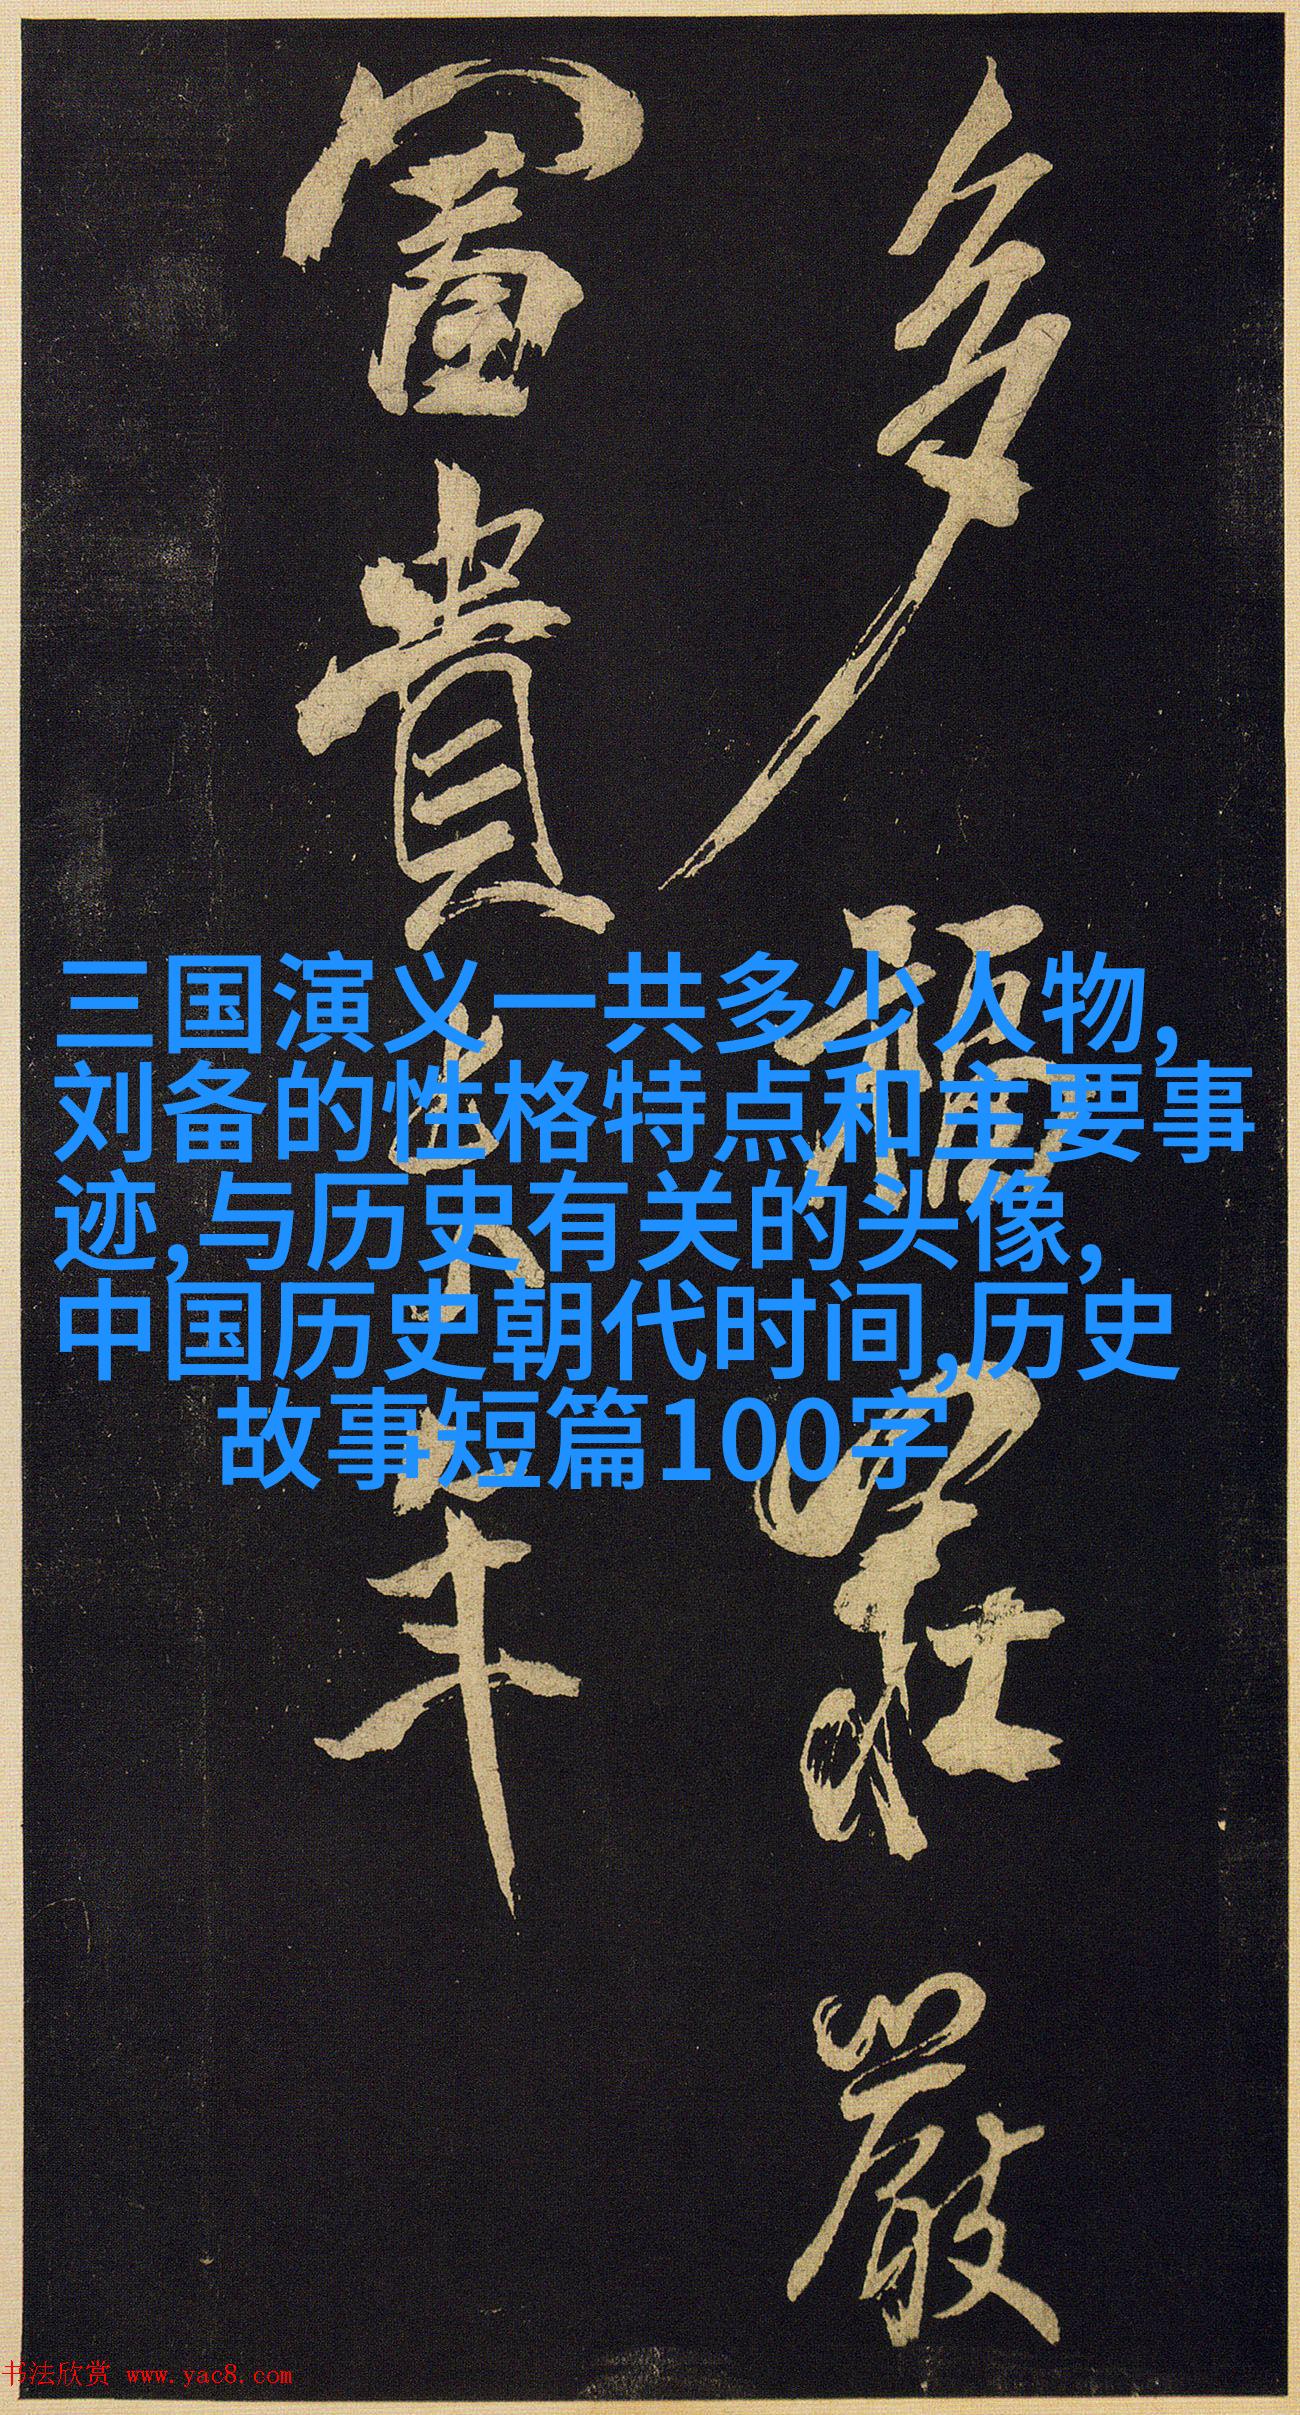 多福莊嚴
富貴長年
三国演义一共多少人物,
刘备的性格特点和主要事
迹,与历史有关的头像,
中国历史朝代时间,历史
故事短篇100字
书法欣赏 www.yac8.com